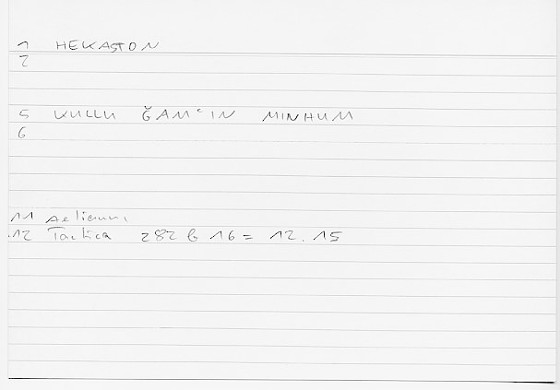 1 HEKASTON
2
5 KULLU ĞAMʿIN MINHUM
6
11 Aelianus
12 Tactica 282 b 16 = 12.15